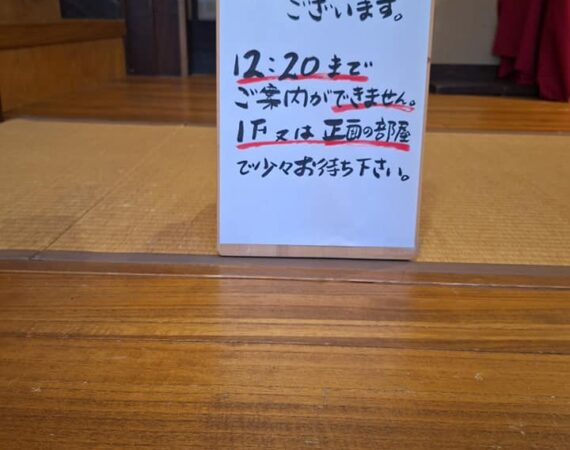 ございます。
12:20まで
ご案内ができません。
1F又は正面の部屋
で少々お待ち下さい。